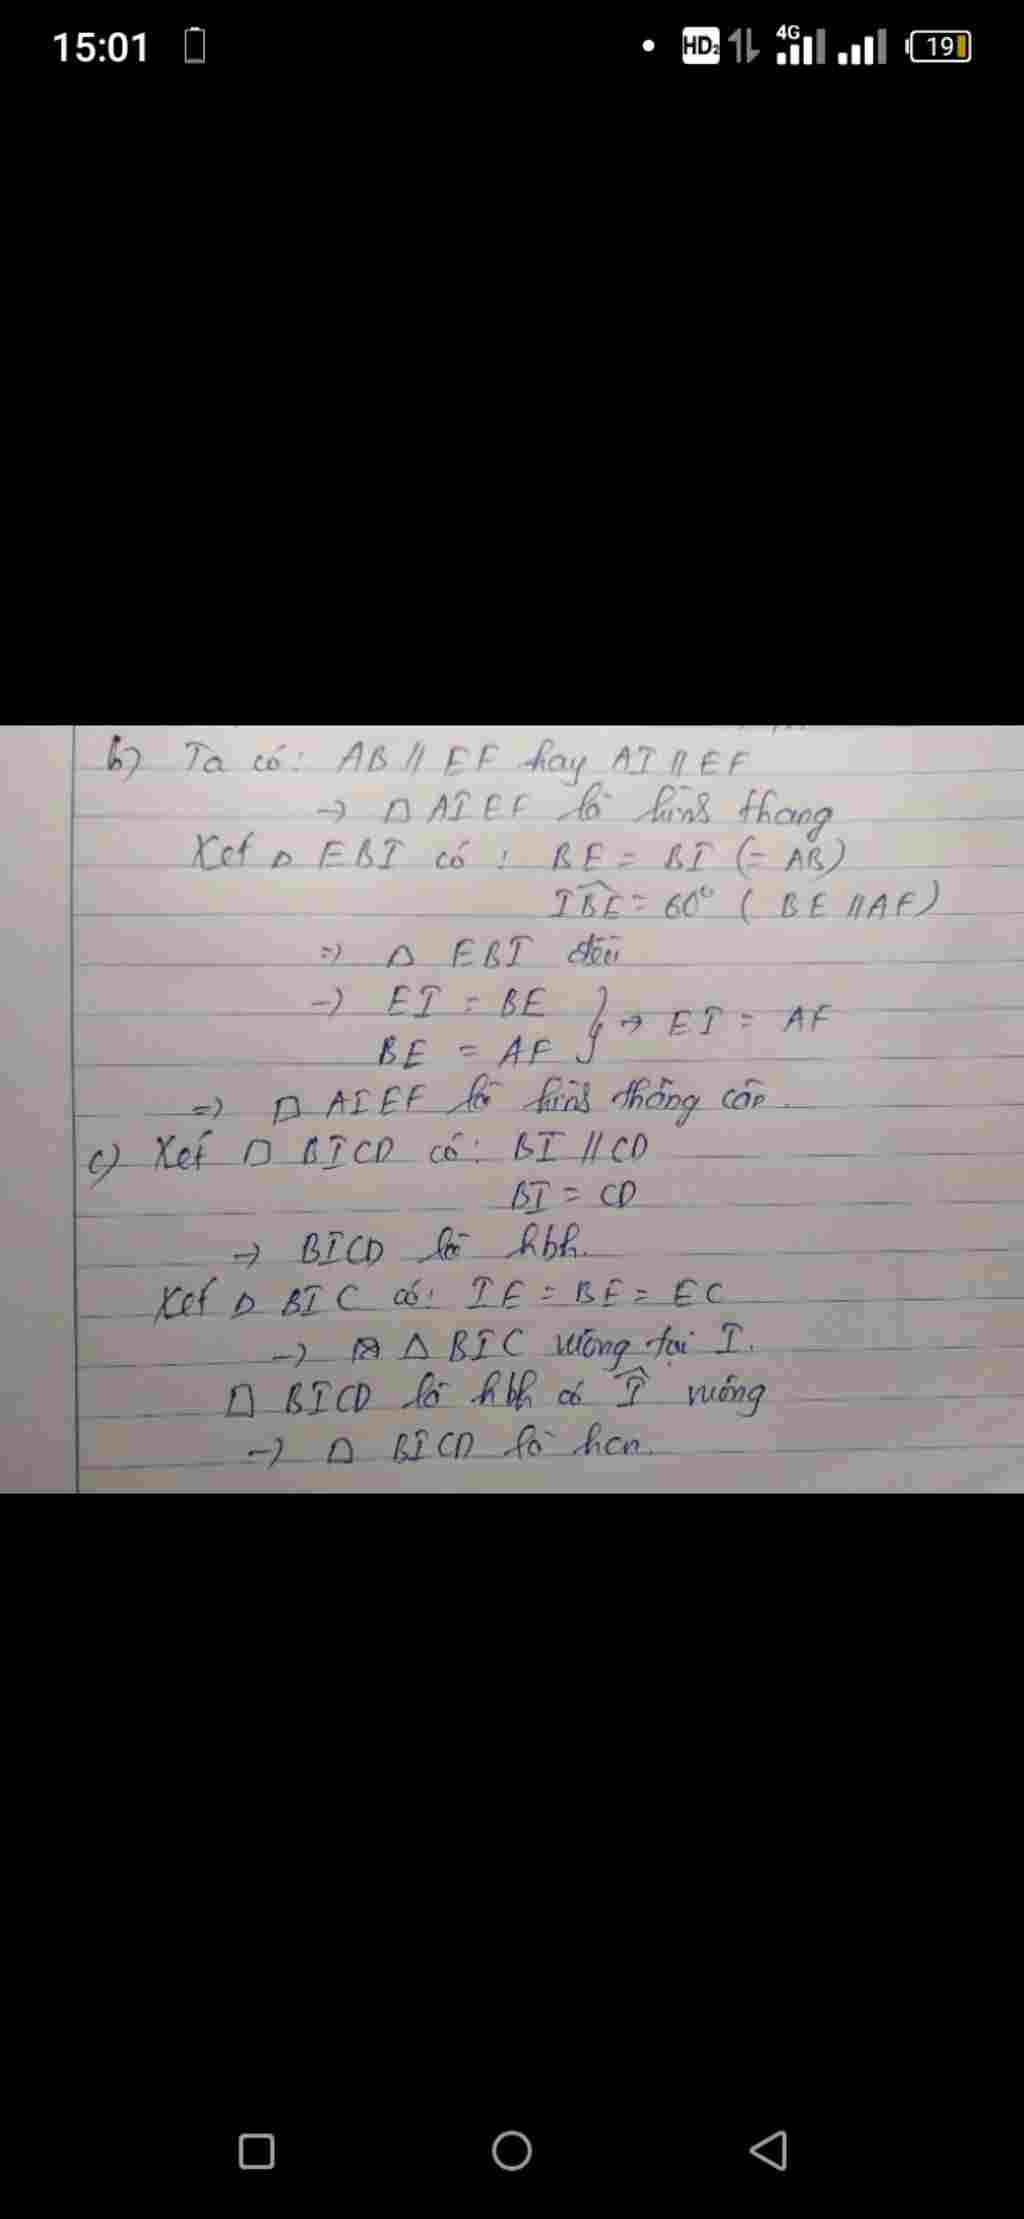 15:01
HD2 4G 19
b) Ta có: AB // EF hay AI // EF
→ □ AIEF là hình thang
Xét △ EBI có: BE = BI (= AB)
IBE = 60° ( BE // AF)
=> △ EBI đều
→ EI = BE
} → EI = AF
BE = AF
=> □ AIEF là hình thang cân.
c) Xét □ BICD có: BI // CD
BI = CD
→ BICD là hbh.
Xét △ BIC có: IE = BE = EC
→ △ BIC vuông tại I.
□ BICD là hbh có Î vuông
→ □ BICD là hcn.